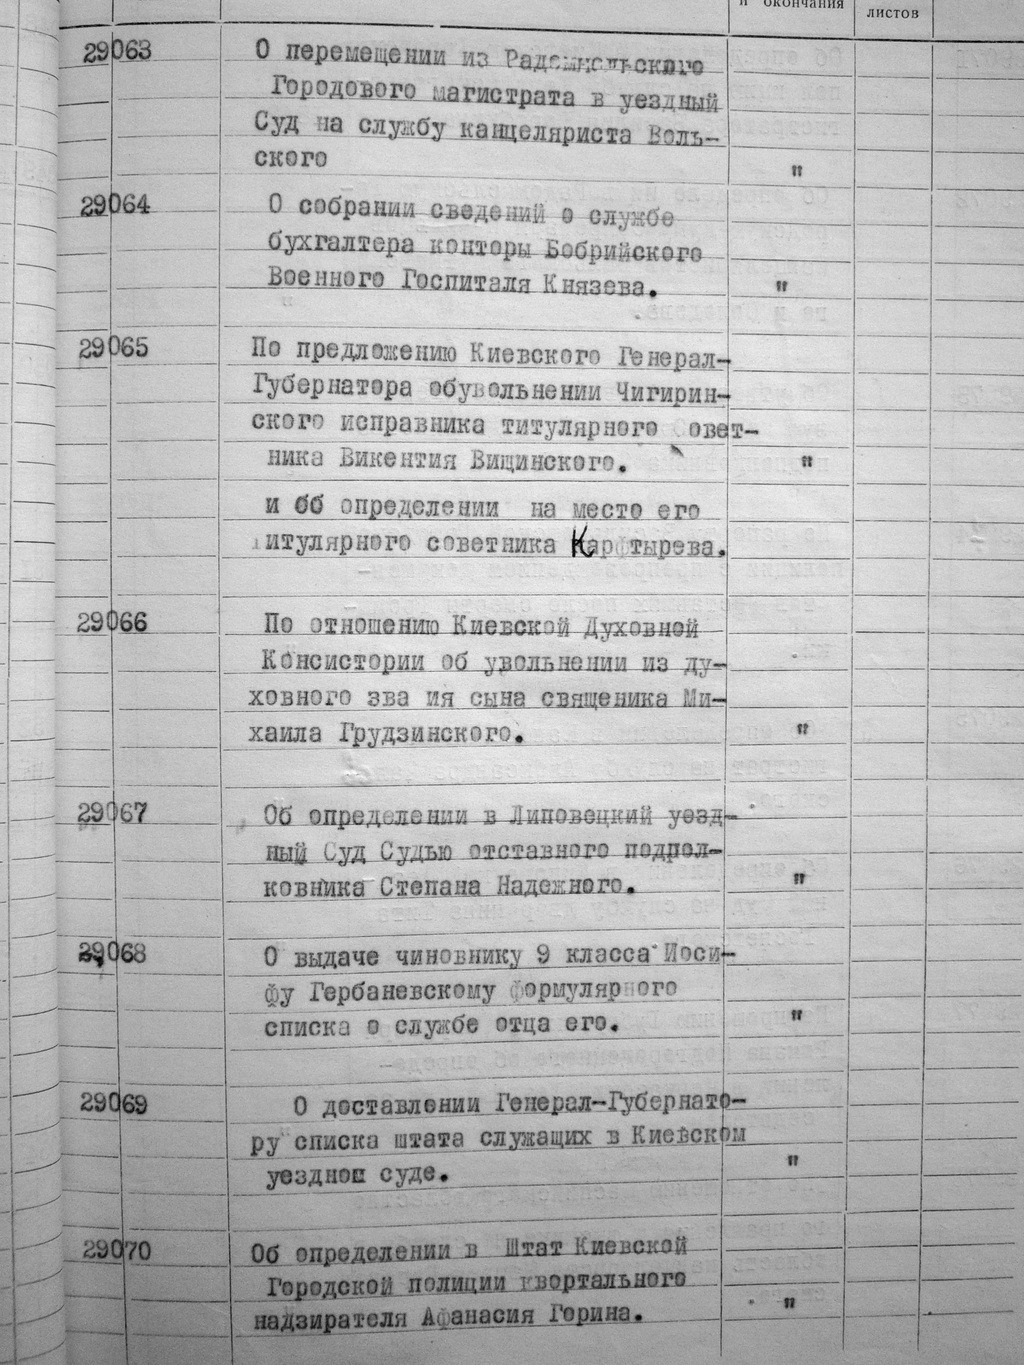 и окончания
листов
29063 О перемещении из Радомысльского
Городового магистрата в уездный
Суд на службу канцеляриста Воль-
ского "
29064 О собрании сведений о службе
бухгалтера конторы Бобрийского
Военного Госпиталя Князева. "
29065 По предложению Киевского Генерал-
Губернатора обувольнении Чигирин-
ского исправника титулярного овет-
ника Викентия Вищинского. "
и об определении на место его
итулярного советника Карфтырева.
29066 По отношению Киевской Духовной
Консистории об увольнении из ду-
ховного зва ия сына священика Ми-
хаила Грудзинского. "
29067 Об определении в Липовецкий уезд-
ный Суд Судью отставного подпол-
ковника Степана Надежного. "
29068 О выдаче чиновнику 9 класса Иоси-
фу Гербаневскому формулярного
списка о службе отца его. "
29069 О доставлении Генерал-Губернато-
ру списка штата служащих в Киевском
уездном суде. "
29070 Об определении в Штат Киевской
Городской полиции квортального
надзирателя Афанасия Горина. "